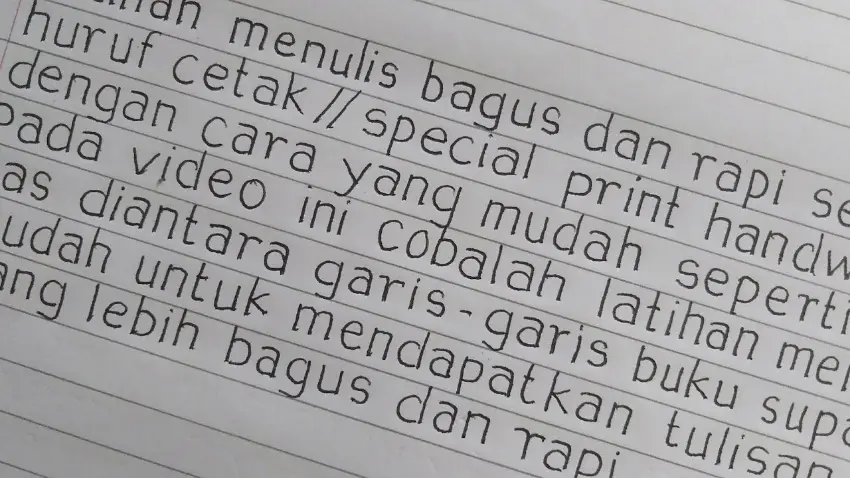 menulis bagus dan rapi
huruf cetak // special print
dengan cara yang mudah seperti
pada video ini cobalah latihan
diantara garis-garis buku
untuk mendapatkan tulisan
lebih bagus dan rapi